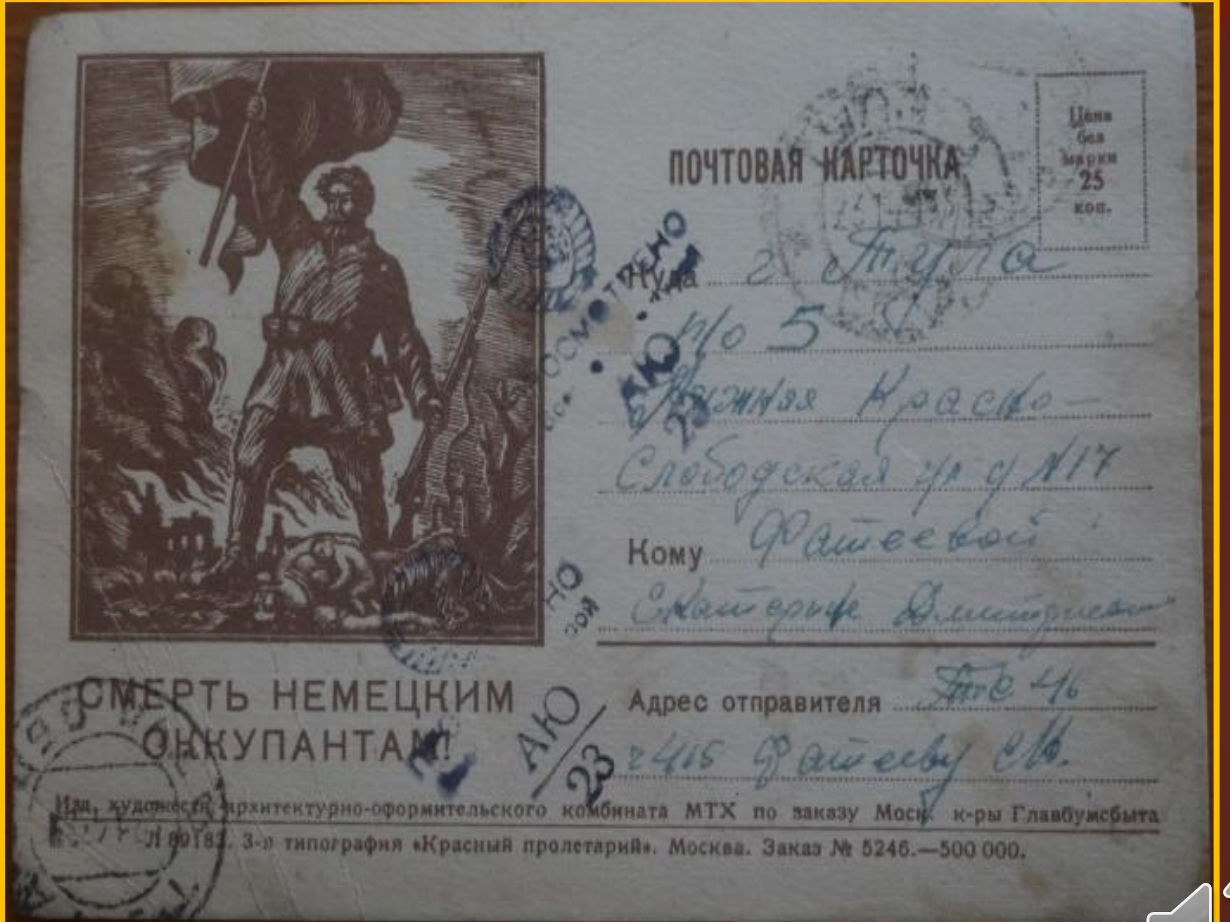 ПОЧТОВАЯ КАРТОЧКА
Цена
без
марки
25
коп.
Куда г. Тула
п/о 5
Нижняя Красно-
Слободская ул д N17
Кому Фатеевой
Екатерине Дмитриевне
Адрес отправителя
Фатееву
ПРОСМОТРЕНО
АЮ
23
НО
АЮ
23
СМЕРТЬ НЕМЕЦКИМ
ОККУПАНТАМ!
Изд. художеств. архитектурно-оформительского комбината МТХ по заказу Моск. к-ры Главбумсбыта
Л 89183. 3-я типография «Красный пролетарий». Москва. Заказ № 5246.—500 000.